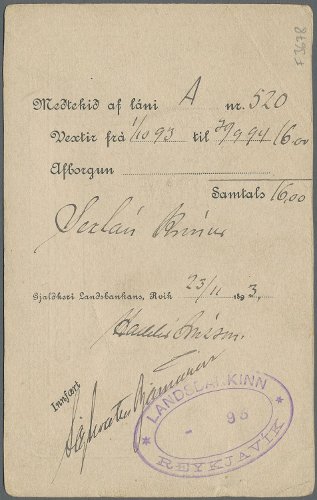 F3678
Meðtekið af láni A nr. 520
Vextir frá 1/10 93 til 30/9 94 16.00
Afborgun
Samtals 16,00
Sextán krónur
Gjaldkeri Landsbankans, Rvík 23/11 1893.
Halldór Jónsson.
Innfært
Sighvatur Bjarnason
LANDSBANKINN
93
REYKJAVÍK